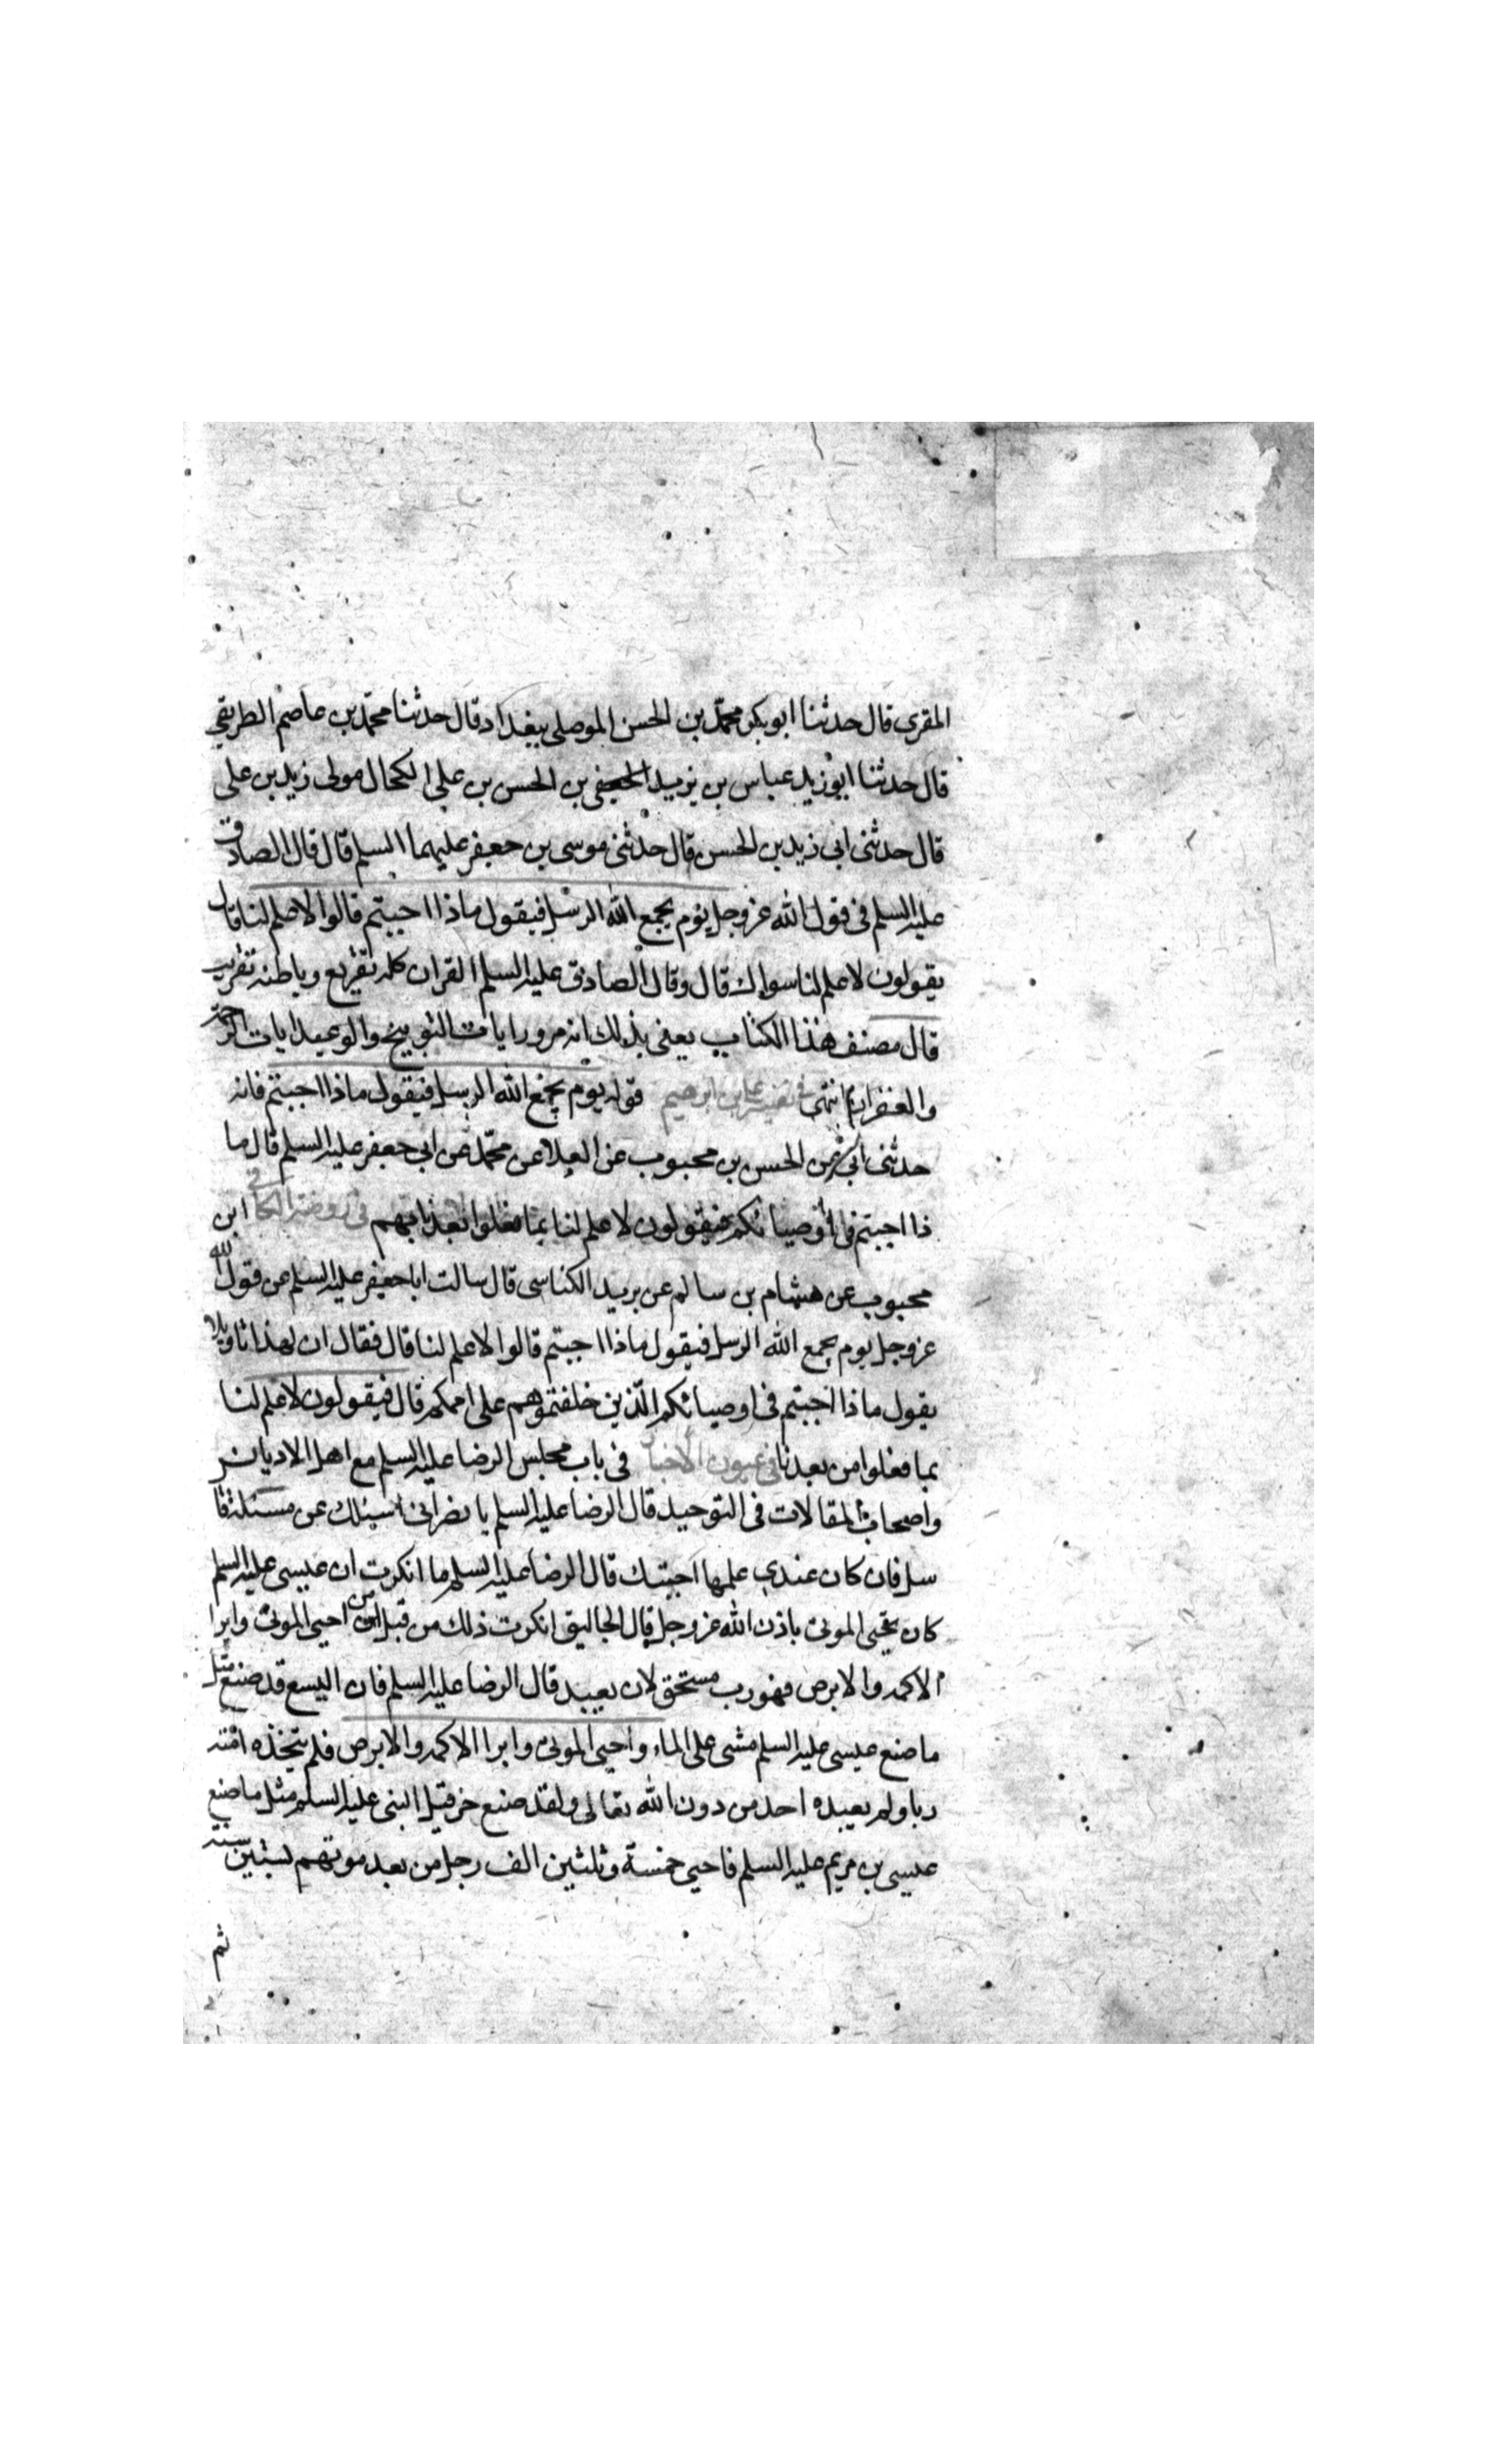 المقرى قال حدثنا ابو بكر محمد بن الحسن الموصلى ببغداد قال حدثنا محمد بن عاصم الطريقي
قال حدثنا ابو زيد عباس بن يزيد بن الحسن بن على الكحال مولى زيد بن على
قال حدثنى ابى زيد بن الحسن قال حدثنى موسى بن جعفر عليهما السلم قال قال الصادق
عليه السلم فى قول الله عز وجل يوم يجمع الله الرسل فيقول ماذا اجبتم قالوا لا علم لنا قال
يقولون لا علم لنا سواك قال وقال الصادق عليه السلم القران كله تقريع وباطنه تقريب
قال مصنف هذا الكتاب يعنى بذلك انه من ورا ايات التوبيخ والوعيد ايات الرحمة
والغفران انتهى فى تفسير على بن ابرهيم قوله يوم يجمع الله الرسل فيقول ماذا اجبتم فانه
حدثنى ابى عن الحسن بن محبوب عن العلا عن محمد عن ابى جعفر عليه السلم قال ما
ذا اجبتم فى اوصيائكم فيقولون لا علم لنا بما فعلوا بعدنا بهم فى روضة الكافى ابن
محبوب عن هشام بن سالم عن بريد الكناسى قال سالت ابا جعفر عليه السلم عن قول الله
عز وجل يوم يجمع الله الرسل فيقول ماذا اجبتم قالوا لا علم لنا قال فقال ان لهذا تاويلا
يقول ماذا اجبتم فى اوصيائكم الذين خلفتموهم على اممكم قال فيقولون لا علم لنا
بما فعلوا من بعدنا فى عيون الاخبار فى باب مجلس الرضا عليه السلم مع اهل الاديان
واصحاب المقالات فى التوحيد قال الرضا عليه السلم يا نصرانى اسئلك عن مسئلة قا
سل فان كان عندى علمها اجبتك قال الرضا عليه السلم ما انكرت ان عيسى عليه السلم
كان يحيى الموتى باذن الله عز وجل قال الجاثليق انكرت ذلك من قبل ان من احيى الموتى وابرا
الاكمه والابرص فهو رب مستحق لان يعبد قال الرضا عليه السلم فان اليسع قد صنع مثل
ما صنع عيسى عليه السلم مشى على الماء واحيى الموتى وابرا الاكمه والابرص فلم يتخذه امته
ربا ولم يعبده احد من دون الله تعالى ولقد صنع حزقيل النبى عليه السلم مثل ما صنع
عيسى بن مريم عليه السلم فاحيى خمسة وثلثين الف رجل من بعد موتهم بستين سنة
ثم